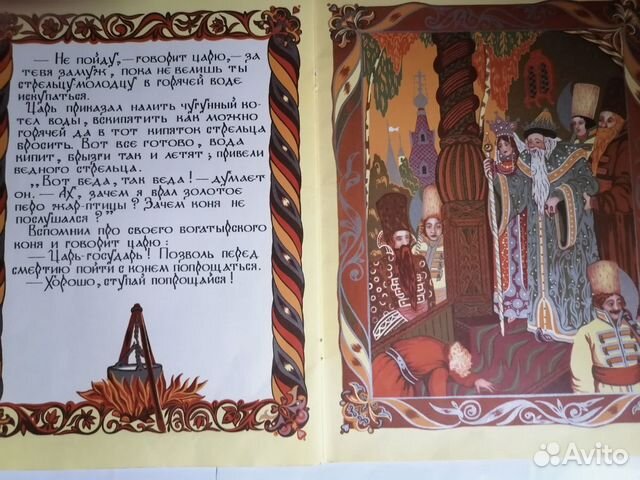 — Не пойду, — говорит царю, — за
тебя замуж, пока не велишь ты
стрельцу-молодцу в горячей воде
искупаться.
Царь приказал налить чугунный ко-
тел воды, вскипятить как можно
горячей да в тот кипяток стрельца
бросить. Вот все готово, вода
кипит, брызги так и летят; привели
бедного стрельца.
„Вот беда, так беда! — думает
он. — Ах, зачем я брал золотое
перо жар-птицы? Зачем коня не
послушался?"
Вспомнил про своего богатырского
коня и говорит царю:
— Царь-государь! Позволь перед
смертию пойти с конем попрощаться.
— Хорошо, ступай попрощайся!
Avito